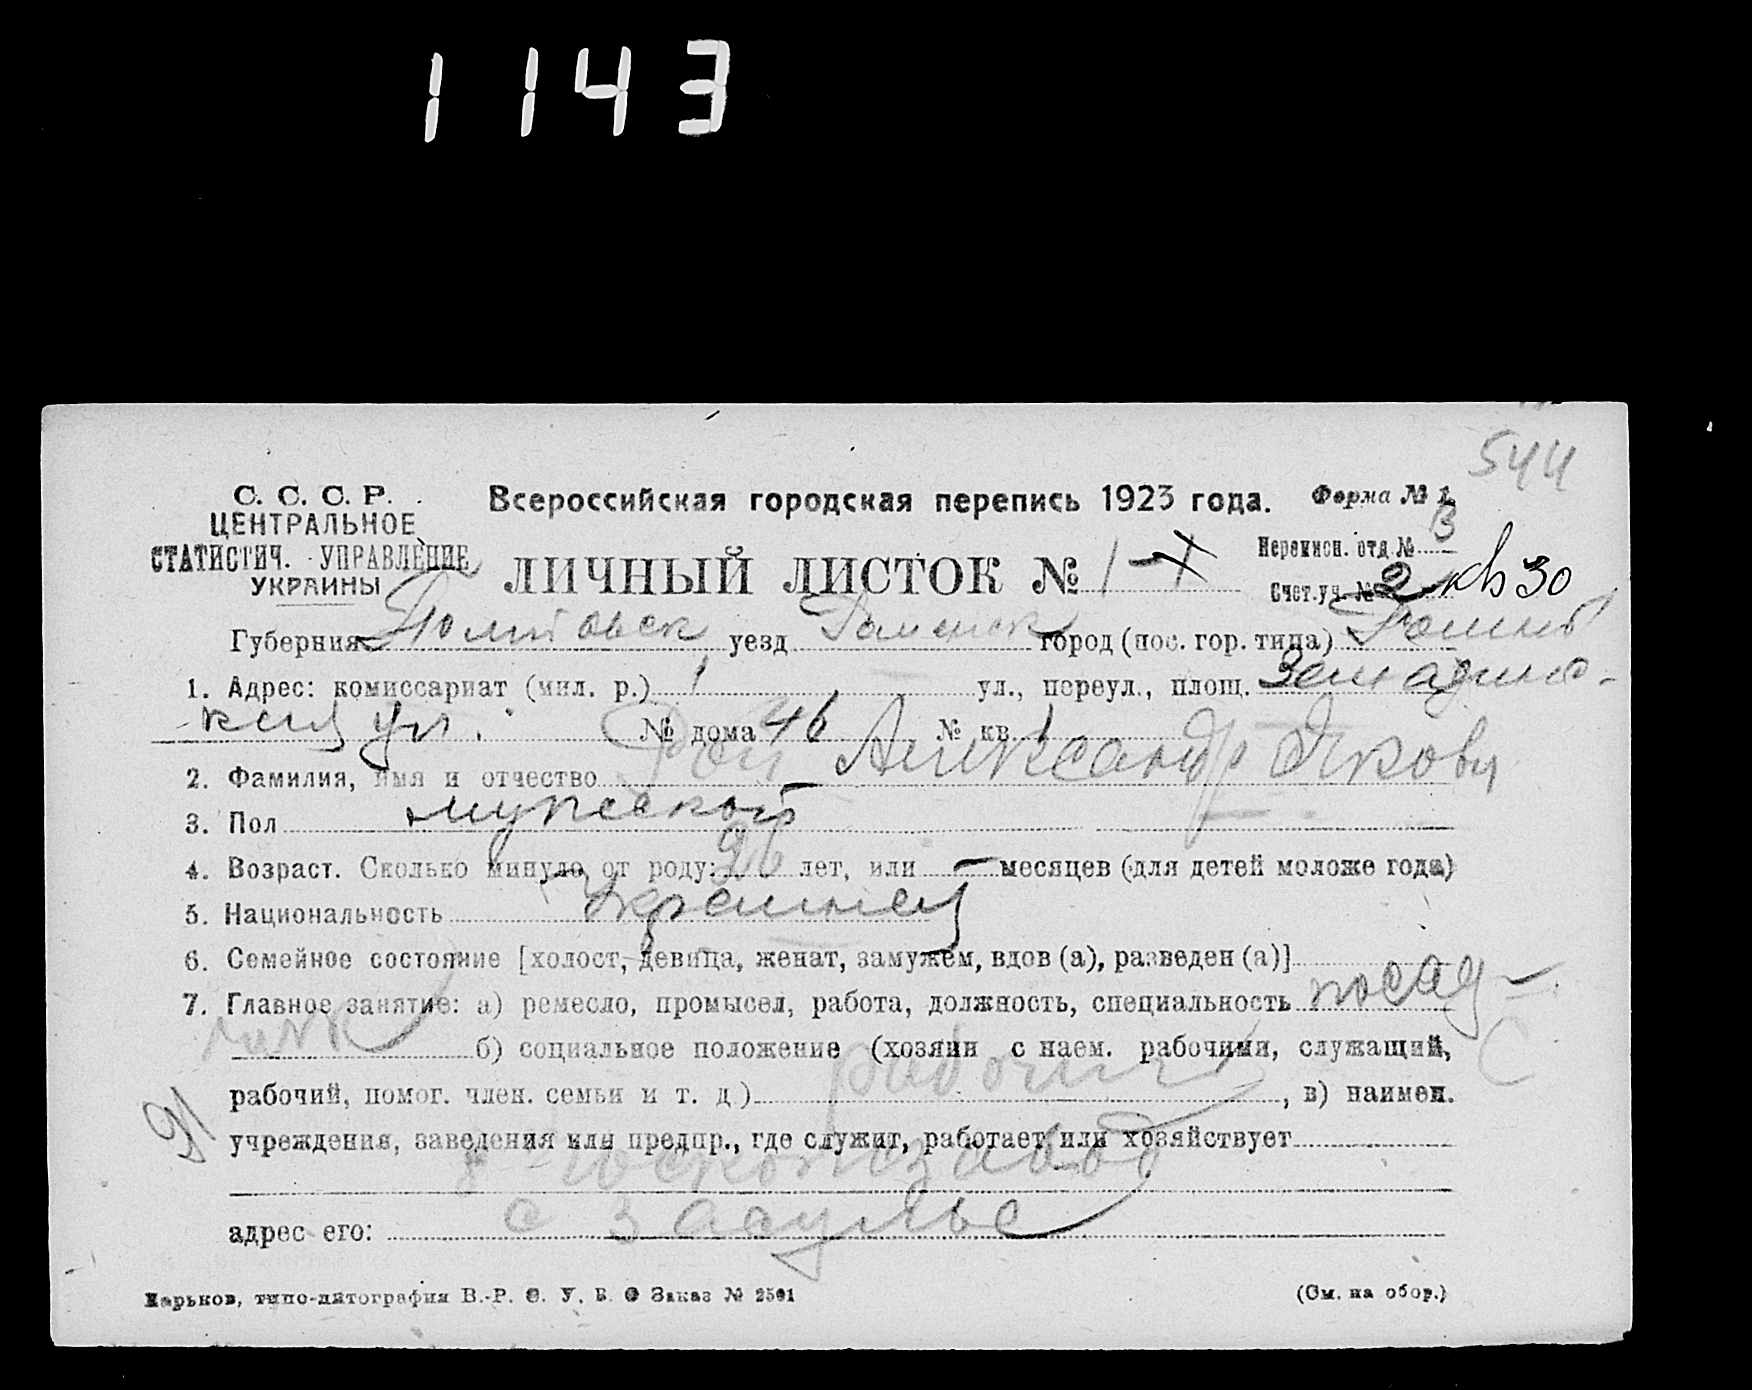 1143
544
С. С. С. Р.
ЦЕНТРАЛЬНОЕ
СТАТИСТИЧ. УПРАВЛЕНИЕ
УКРАИНЫ
Всероссийская городская перепись 1923 года.
Форма № 1.
ЛИЧНЫЙ ЛИСТОК № 1
Переписн. отд. № 3
Счет.уч. № 2 кв 30
Губерния Полтавск уезд Роменск город (пос. гор. типа) Ромны
1. Адрес: комиссариат (мил. р.) 1 ул., переул., площ.
ул. № дома 46 № кв. 1
2. Фамилия, имя и отчество Рой Александр Яковл
3. Пол мужской
4. Возраст. Сколько минуло от роду: 26 лет, или – месяцев (для детей моложе года)
5. Национальность Украинец
6. Семейное состояние [холост, девица, женат, замужем, вдов (а), разведен (а)]
7. Главное занятие: а) ремесло, промысел, работа, должность, специальность
б) социальное положение (хозяин с наем. рабочими, служащий,
рабочий, помог. член. семьи и т. д.) рабочий, в) наимен.
учреждения, заведения или предпр., где служит, работает или хозяйствует
адрес его: с Засулье
Харьков, типо-литография В.-Р. С. У. В. О Заказ № 2501
(См. на обор.)